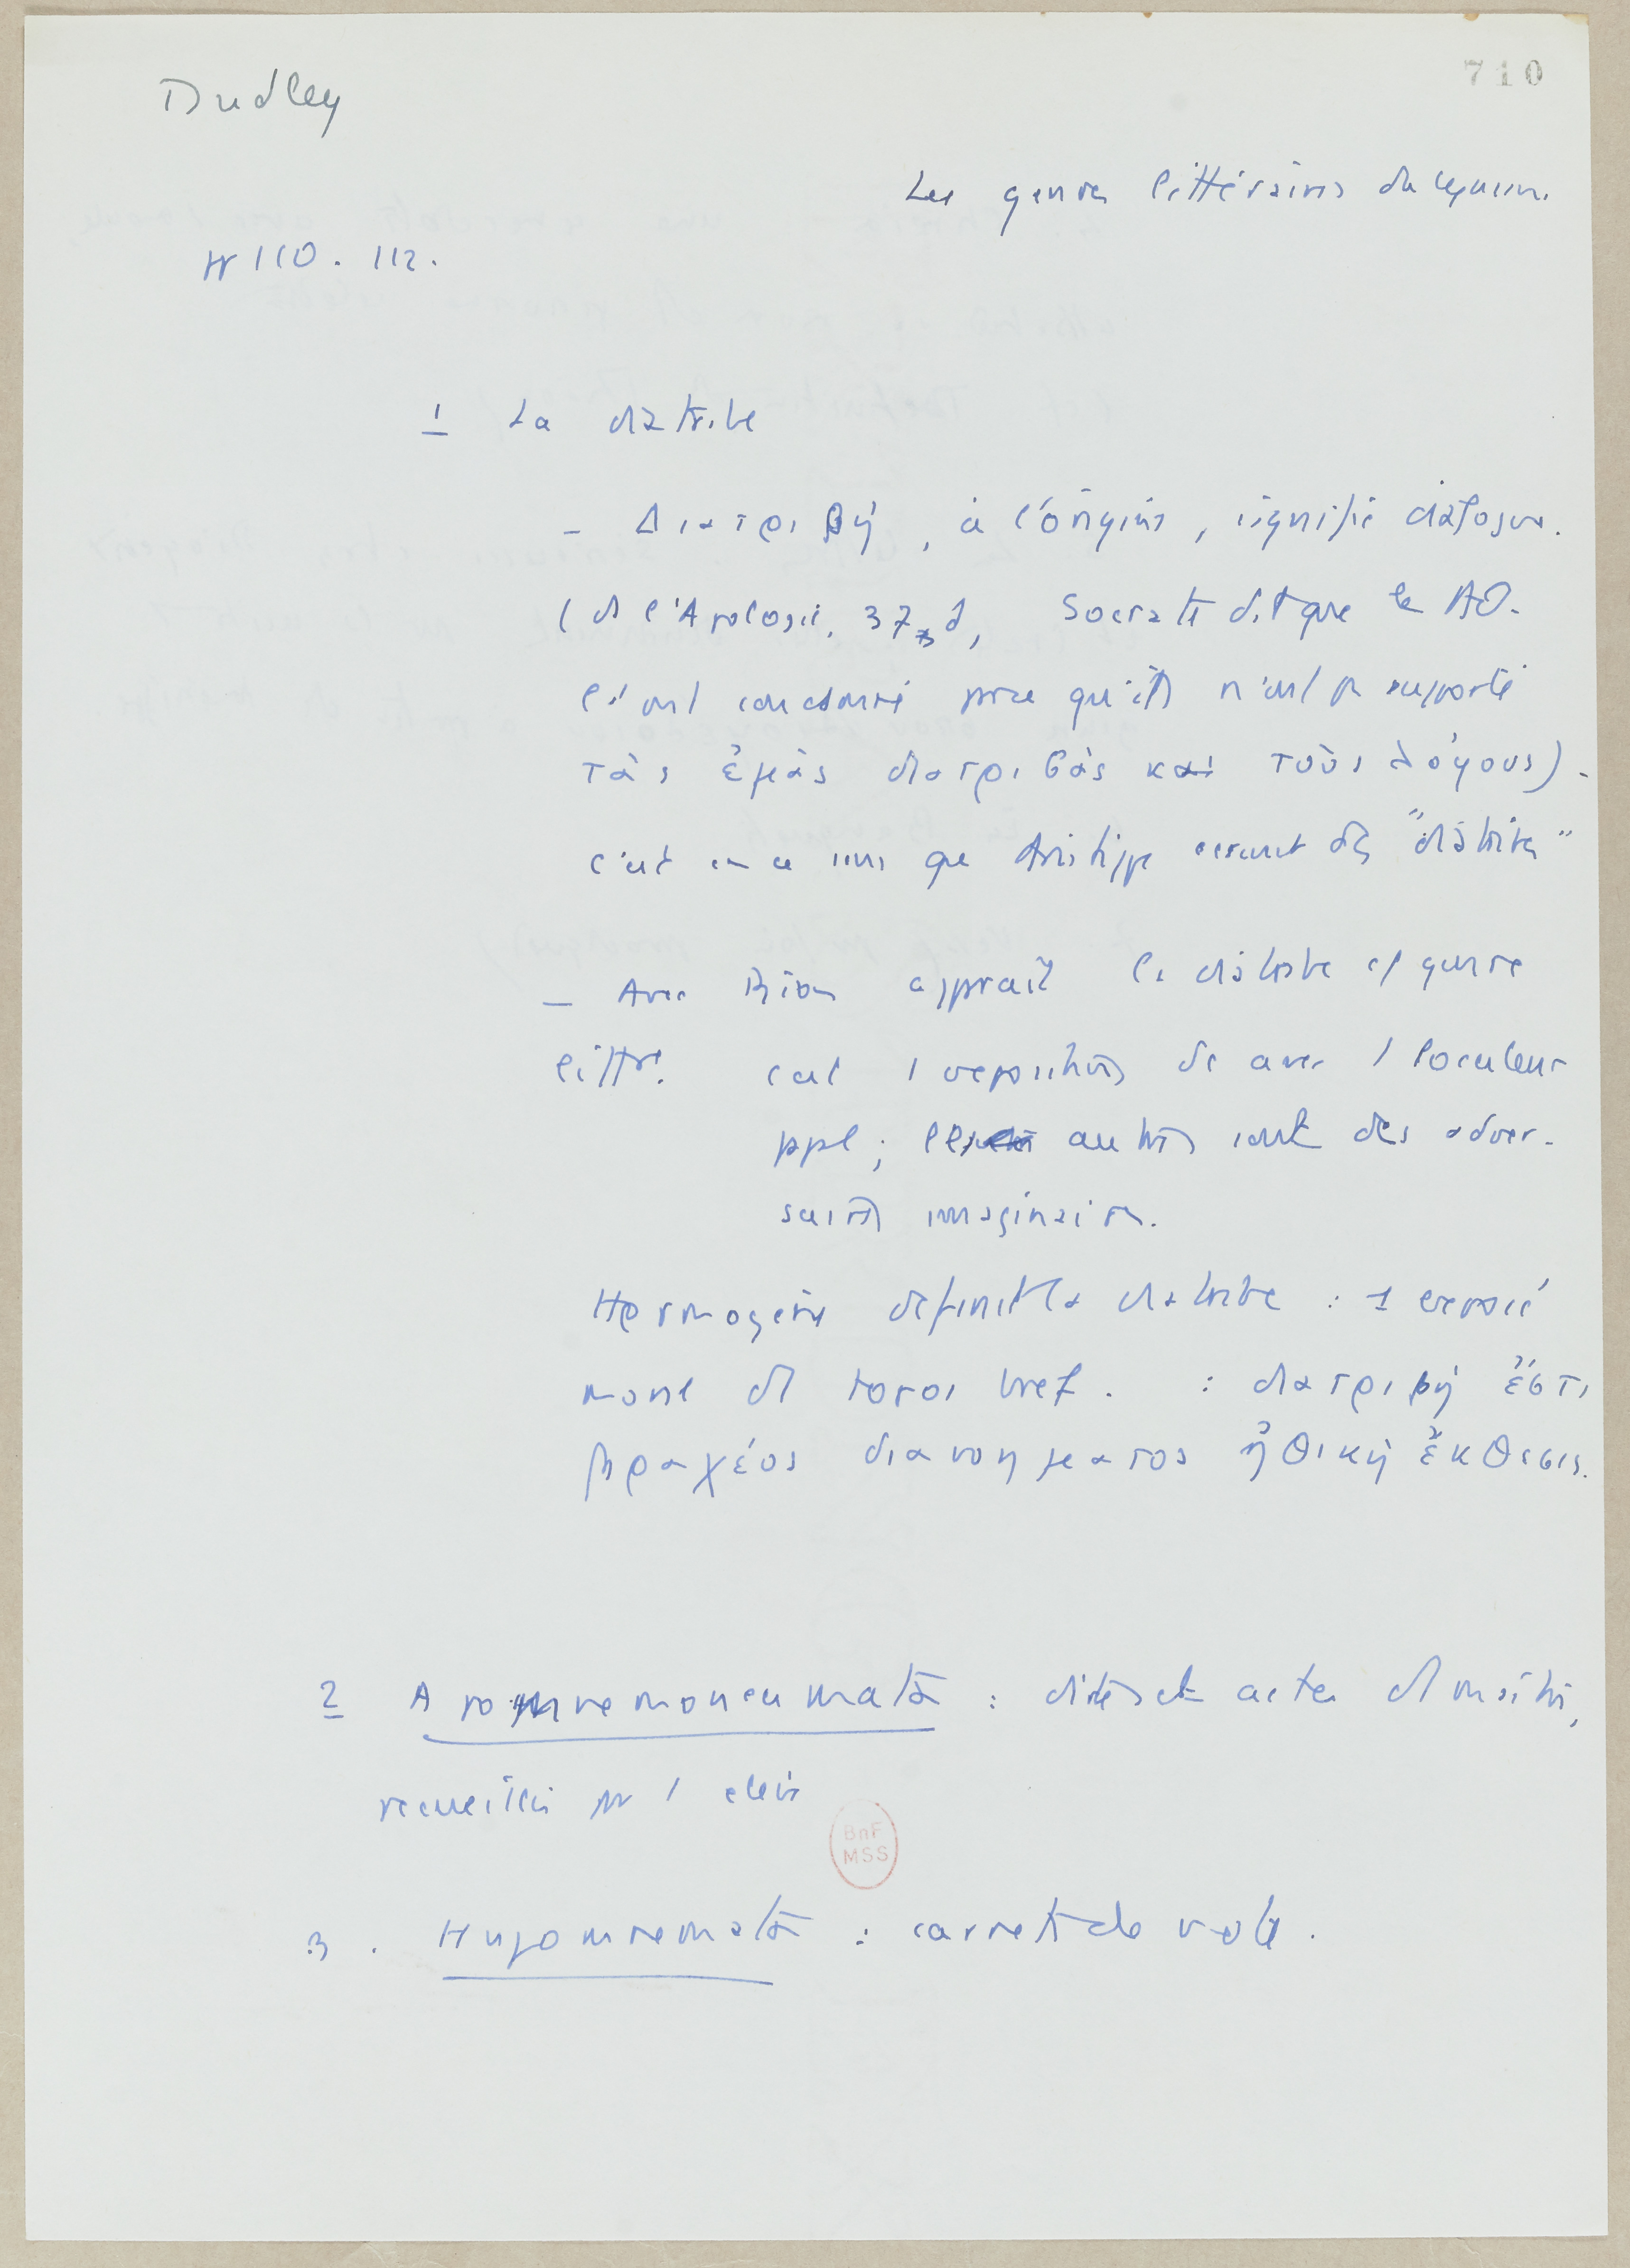 Dudley
710
Les genres littéraires du cynisme.
pp 110. 112.
1 La diatribe
– Διατριβή, à l'origine, signifie dialogue.
(ds l'Apologie. 37 d, Socrate dit que les Ath.
l'ont condamné parce qu'ils n'ont pas supporté
τὰς ἐμὰς διατριβὰς καὶ τοὺς λόγους).
c'est en ce sens que Aristippe écrivit des "diatribes"
– Avec Bion apparaît la diatribe c/ genre
littre. c'est 1 avec 1 locuteur
ppl; les autres sont des adver-
saires imaginaires.
Hermogène définit la diatribe : 1 exposé
moral ds topoi bref. : διατριβή ἔστι
βραχέος διανοηματος ἠθικὴ ἔκθεσις.
2 Apomnemoneumata : dits et actes d'1 maître,
recueillis par 1 élève
3. Hupomnemata : carnets de note.
BnF
MSS